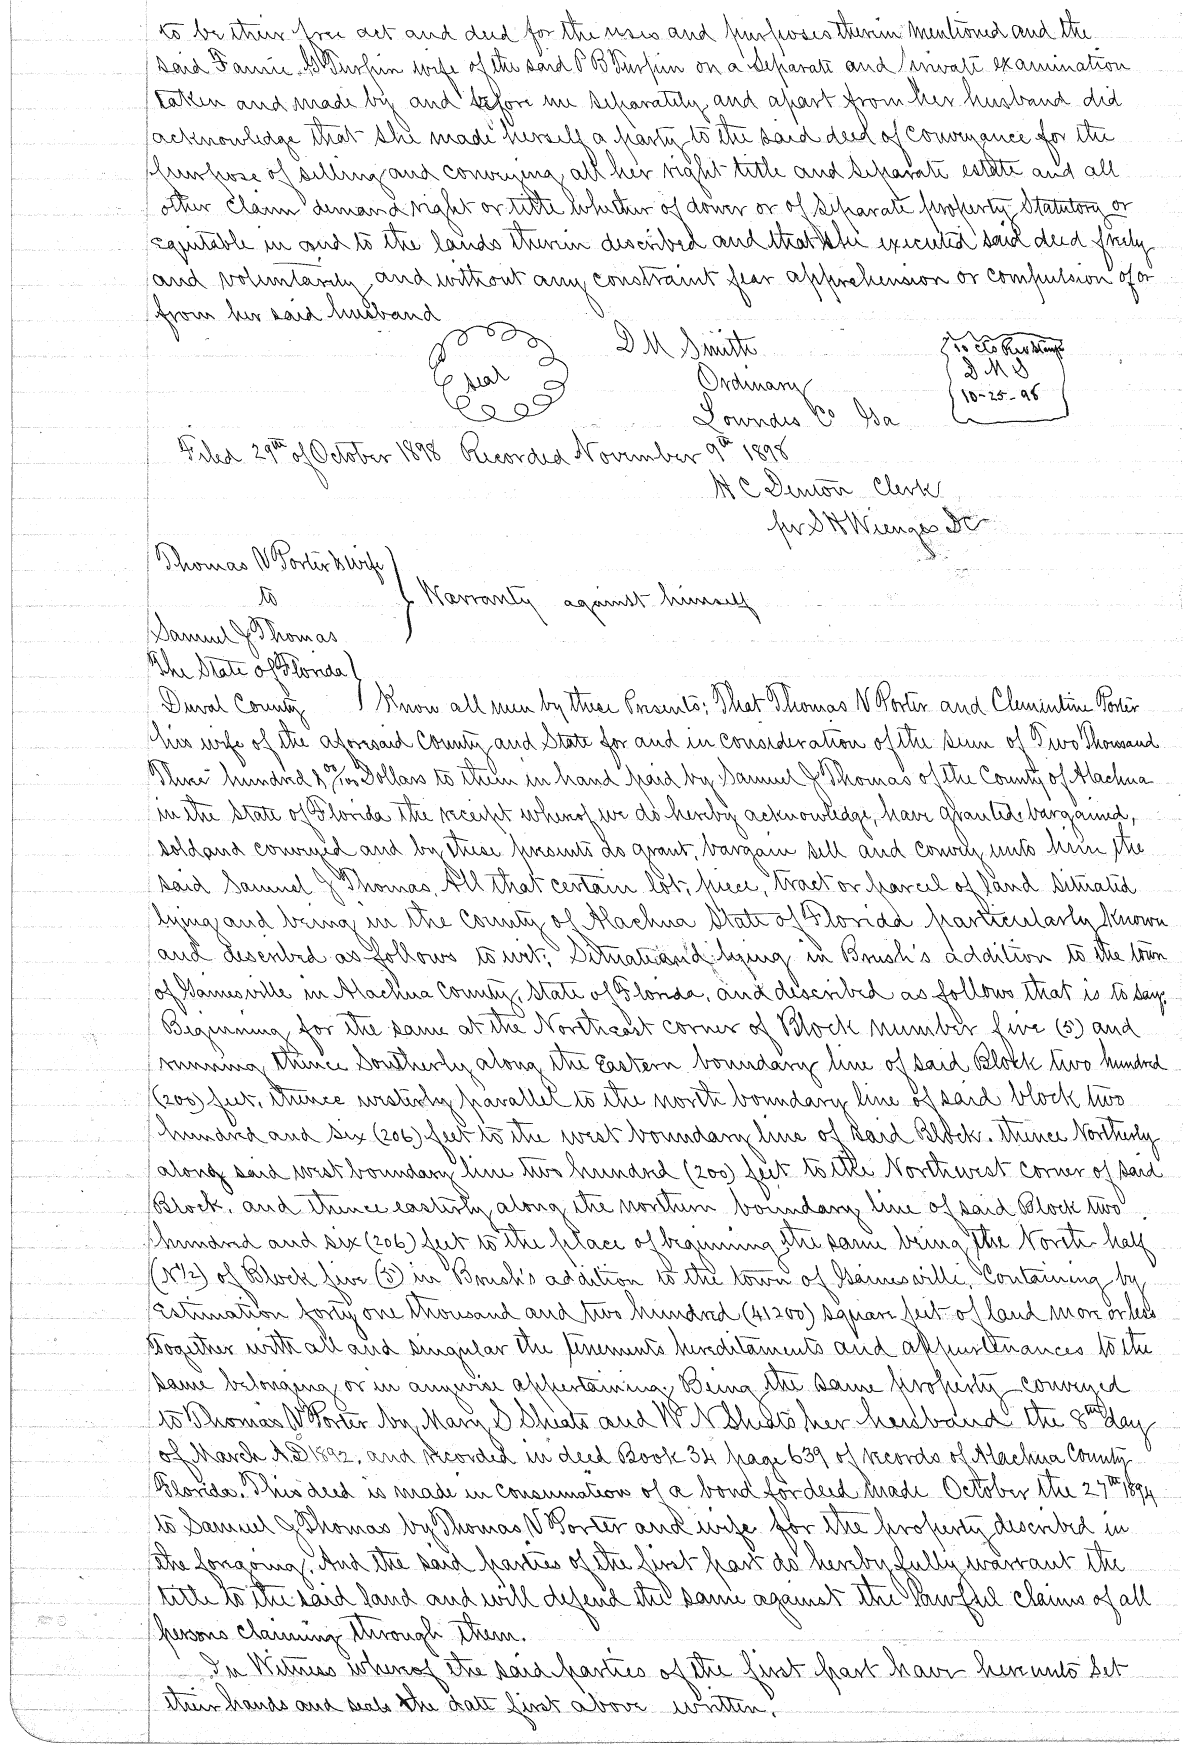 to be their free act and deed for the uses and purposes therein mentioned and the
said Fannie G Turpin wife of the said P B Turpin on a separate and private examination
taken and made by and before me separately and apart from her husband did
acknowledge that she made herself a party to the said deed of conveyance for the
purpose of selling and conveying all her right title and separate estate and all
other claim demand right or title whether of dower or of separate property statutory or
equitable in and to the lands therein described and that she executed said deed freely
and voluntarily and without any constraint fear apprehension or compulsion of or
from her said husband
Seal
D M Smith
Ordinary
Lowndes Co Ga
10 cts Rev Stamp
D M S
10-25-98
Filed 29th of October 1898 Recorded November 9th 1898
H C Denton Clerk
pr S H Wienges DC
Thomas V Porter & wife
to
Samuel J Thomas
Warranty against himself
The State of Florida
Duval County Know all men by these Presents; That Thomas V Porter and Clementine Porter
his wife of the aforesaid County and State for and in consideration of the sum of Two Thousand
Three hundred & 00/100 Dollars to them in hand paid by Samuel J Thomas of the County of Alachua
in the State of Florida the receipt whereof we do hereby acknowledge, have granted bargained,
sold and conveyed and by these presents do grant, bargain sell and convey unto him the
said Samuel J Thomas, All that certain lot, piece, tract or parcel of land situated
lying and being in the County of Alachua State of Florida particularly known
and described as follows to wit; Situate and lying in Brush's addition to the town
of Gainesville in Alachua County, State of Florida, and described as follows that is to say;
Beginning for the same at the Northeast corner of Block number five (5) and
running thence Southerly along the Eastern boundary line of said Block two hundred
(200) feet, thence westerly parallel to the north boundary line of said block two
hundred and six (206) feet to the west boundary line of said Block. thence Northerly
along said west boundary line two hundred (200) feet to the Northwest corner of said
Block, and thence easterly along the northern boundary line of said Block two
hundred and six (206) feet to the place of beginning the same being the North half
(N1/2) of Block five (5) in Brush's addition to the town of Gainesville, Containing by
Estimation forty one thousand and two hundred (41200) square feet of land more or less
Together with all and singular the tenements hereditaments and appurtenances to the
same belonging or in anywise appertaining, Being the same property conveyed
to Thomas V Porter by Mary S Sheats and W N Sheats her husband the 8th day
of March A.D 1892, and recorded in deed Book 34 page 639 of records of Alachua County
Florida. This deed is made in consumation of a bond for deed made October the 27th 1894
to Samuel J Thomas by Thomas V Porter and wife for the property described in
the foregoing. And the said parties of the first part do hereby fully warrant the
title to the said land and will defend the same against the lawful claims of all
persons claiming through them.
In Witness whereof the said parties of the first part have hereunto set
their hands and seals the date first above written.